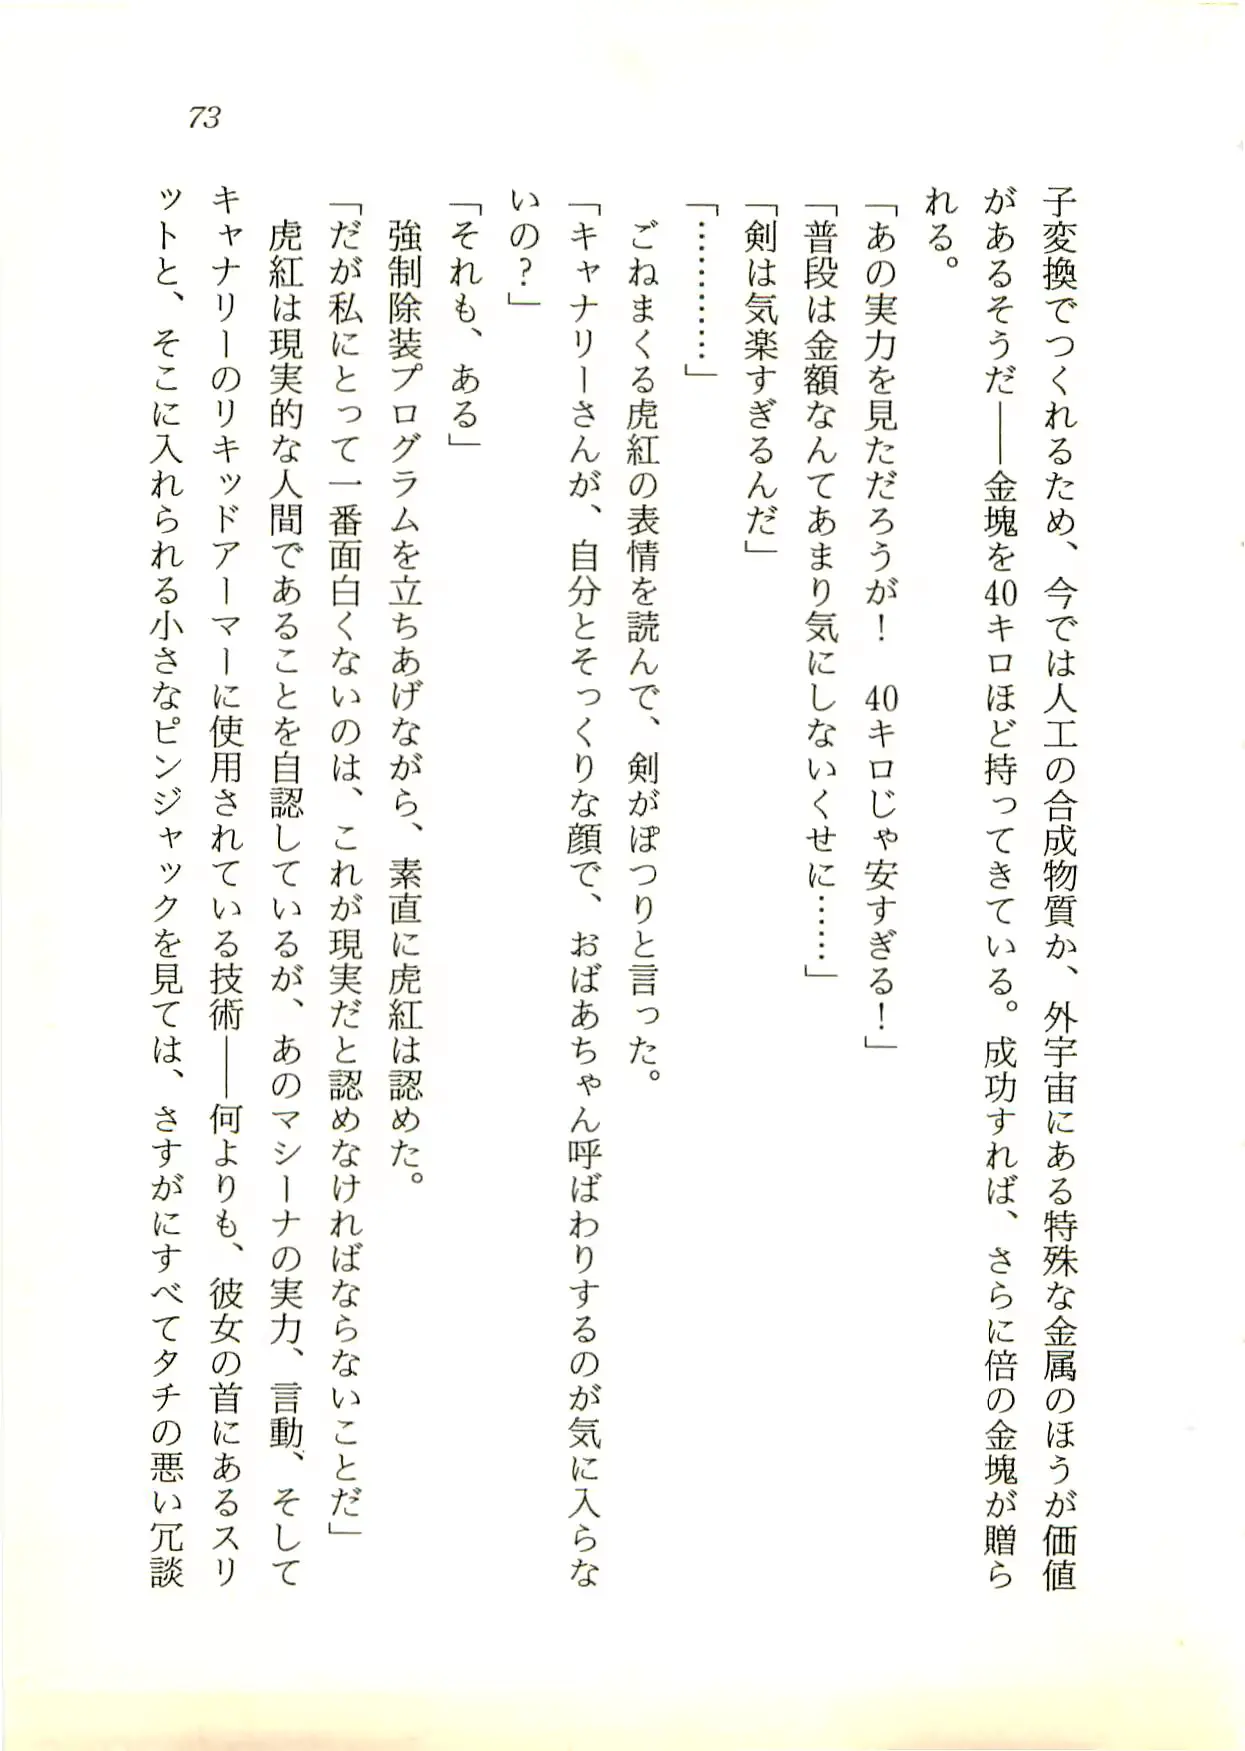 73
子変換でつくれるため、今では人工の合成物質か、外宇宙にある特殊な金属のほうが価値
があるそうだ――金塊を40キロほど持ってきている。成功すれば、さらに倍の金塊が贈ら
れる。
「あの実力を見ただろうが！　40キロじゃ安すぎる！」
「普段は金額なんてあまり気にしないくせに……」
「剣は気楽すぎるんだ」
「…………」
　ごねまくる虎紅の表情を読んで、剣がぽつりと言った。
「キャナリーさんが、自分とそっくりな顔で、おばあちゃん呼ばわりするのが気に入らな
いの？」
「それも、ある」
　強制除装プログラムを立ちあげながら、素直に虎紅は認めた。
「だが私にとって一番面白くないのは、これが現実だと認めなければならないことだ」
　虎紅は現実的な人間であることを自認しているが、あのマシーナの実力、言動、そして
キャナリーのリキッドアーマーに使用されている技術――何よりも、彼女の首にあるスリ
ットと、そこに入れられる小さなピンジャックを見ては、さすがにすべてタチの悪い冗談